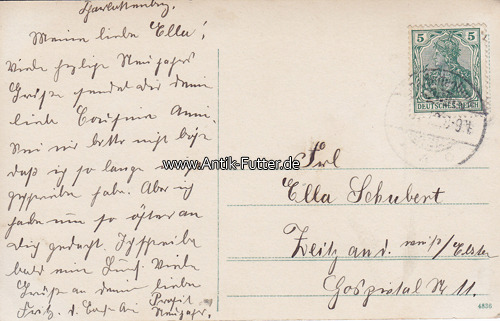 Charlottenburg.
Meine liebe Ella!
Viele herzliche Neujahrs
Grüße sendet dir deine
liebe Cousine Anni.
Sei mir bitte nicht böse
daß ich so lange nicht
geschrieben habe. Aber ich
habe um so öfter an
dich gedacht. Ich schreibe
bald mehr Viele
Grüße an deine lieben
Prosit
Neujahr.
5 5
DEUTSCHES REICH
www.Antik-Futter.de
Frl
Ella Schubert
Zeitz an d. weiß/Elster
Hospital 11.
4836